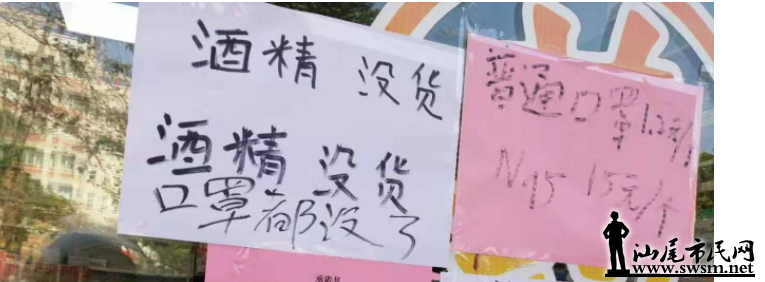 酒精 没货
酒精 没货
口罩都没了
普通口罩1.2元/
N95 15元/个
承诺书
汕尾市民网
www.swsm.net